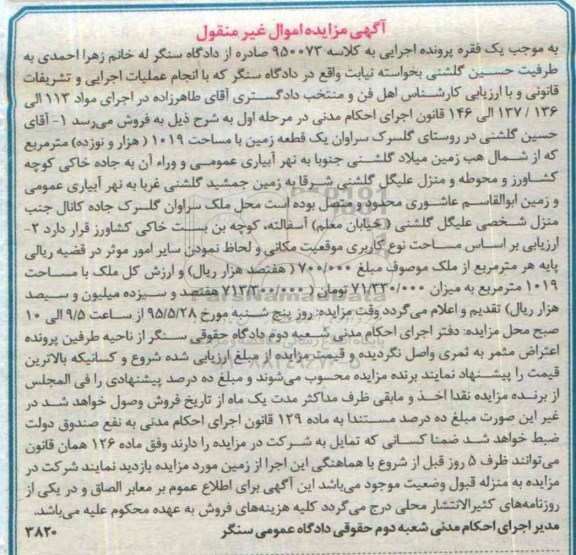 آگهی مزایده اموال غیر منقول
به موجب یک فقره پرونده اجرایی به کلاسه ۹۵۰۰۷۳ صادره از دادگاه سنگر له خانم زهرا احمدی به
طرفیت حسین گلشنی بخواسته نیابت واقع در دادگاه سنگر که با انجام عملیات اجرایی و تشریفات
قانونی و با ارزیابی کارشناس اهل فن و منتخب دادگستری آقای طاهرزاده در اجرای مواد ۱۱۳ الی
۱۳۶ / ۱۳۷ الی ۱۴۶ قانون اجرای احکام مدنی در مرحله اول به شرح ذیل به فروش می‌رسد ۱- آقای
حسین گلشنی در روستای گلسرک سراوان یک قطعه زمین با مساحت ۱۰۱۹ ( هزار و نوزده) مترمربع
که از شمال هب زمین میلاد گلشنی جنوبا به نهر آبیاری عمومی و وراء آن به جاده خاکی کوچه
کشاورز و محوطه و منزل علیگل گلشنی شرقا به زمین جمشید گلشنی غربا به نهر آبیاری عمومی
و زمین ابوالقاسم عاشوری محدود و متصل بوده است محل ملک سراوان گلسرک جاده کانال جنب
منزل شخصی علیگل گلشنی ( خیابان معلم) آسفالته، کوچه بن بست خاکی کشاورز قرار دارد ۲-
ارزیابی بر اساس مساحت نوع کاربری موقعیت مکانی و لحاظ نمودن سایر امور موثر در قضیه ریالی
پایه هر مترمربع از ملک موصوف مبلغ ۷۰۰/۰۰۰ ( هفتصد هزار ریال) و ارزش کل ملک با مساحت
۱۰۱۹ مترمربع به میزان ۷۱/۳۳۰/۰۰۰ تومان ( ۷۱۳/۳۰۰/۰۰۰ هفتصد و سیزده میلیون و سیصد
هزار ریال) تقدیم و اعلام می‌گردد وقت مزایده: روز پنج شنبه مورخ ۹۵/۵/۲۸ از ساعت ۹/۵ الی ۱۰
صبح محل مزایده: دفتر اجرای احکام مدنی شعبه دوم دادگاه حقوقی سنگر از ناحیه طرفین پرونده
اعتراض مثمر به ثمری واصل نگردیده و قیمت مزایده از مبلغ ارزیابی شده شروع و کسانیکه بالاترین
قیمت را پیشنهاد نمایند برنده مزایده محسوب می‌شوند و مبلغ ده درصد پیشنهادی را فی المجلس
از برنده مزایده نقدا اخذ و مابقی ظرف مداکثر مدت یک ماه از تاریخ فروش وصول خواهد شد در
غیر این صورت مبلغ ده درصد مستندا به ماده ۱۲۹ قانون اجرای احکام مدنی به نفع صندوق دولت
ضبط خواهد شد ضمنا کسانی که تمایل به شرکت در مزایده را دارند وفق ماده ۱۲۶ همان قانون
می‌توانند ظرف ۵ روز قبل از شروع با هماهنگی این اجرا از زمین مورد مزایده بازدید نمایند شرکت در
مزایده به منزله قبول وضعیت موجود می‌باشد این آگهی برای اطلاع عموم بر معابر الصاق و در یکی از
روزنامه‌های کثیرالانتشار محلی درج می‌گردد کلیه هزینه‌های فروش به عهده محکوم علیه می‌باشد.
مدیر اجرای احکام مدنی شعبه دوم حقوقی دادگاه عمومی سنگر ۳۸۲۰